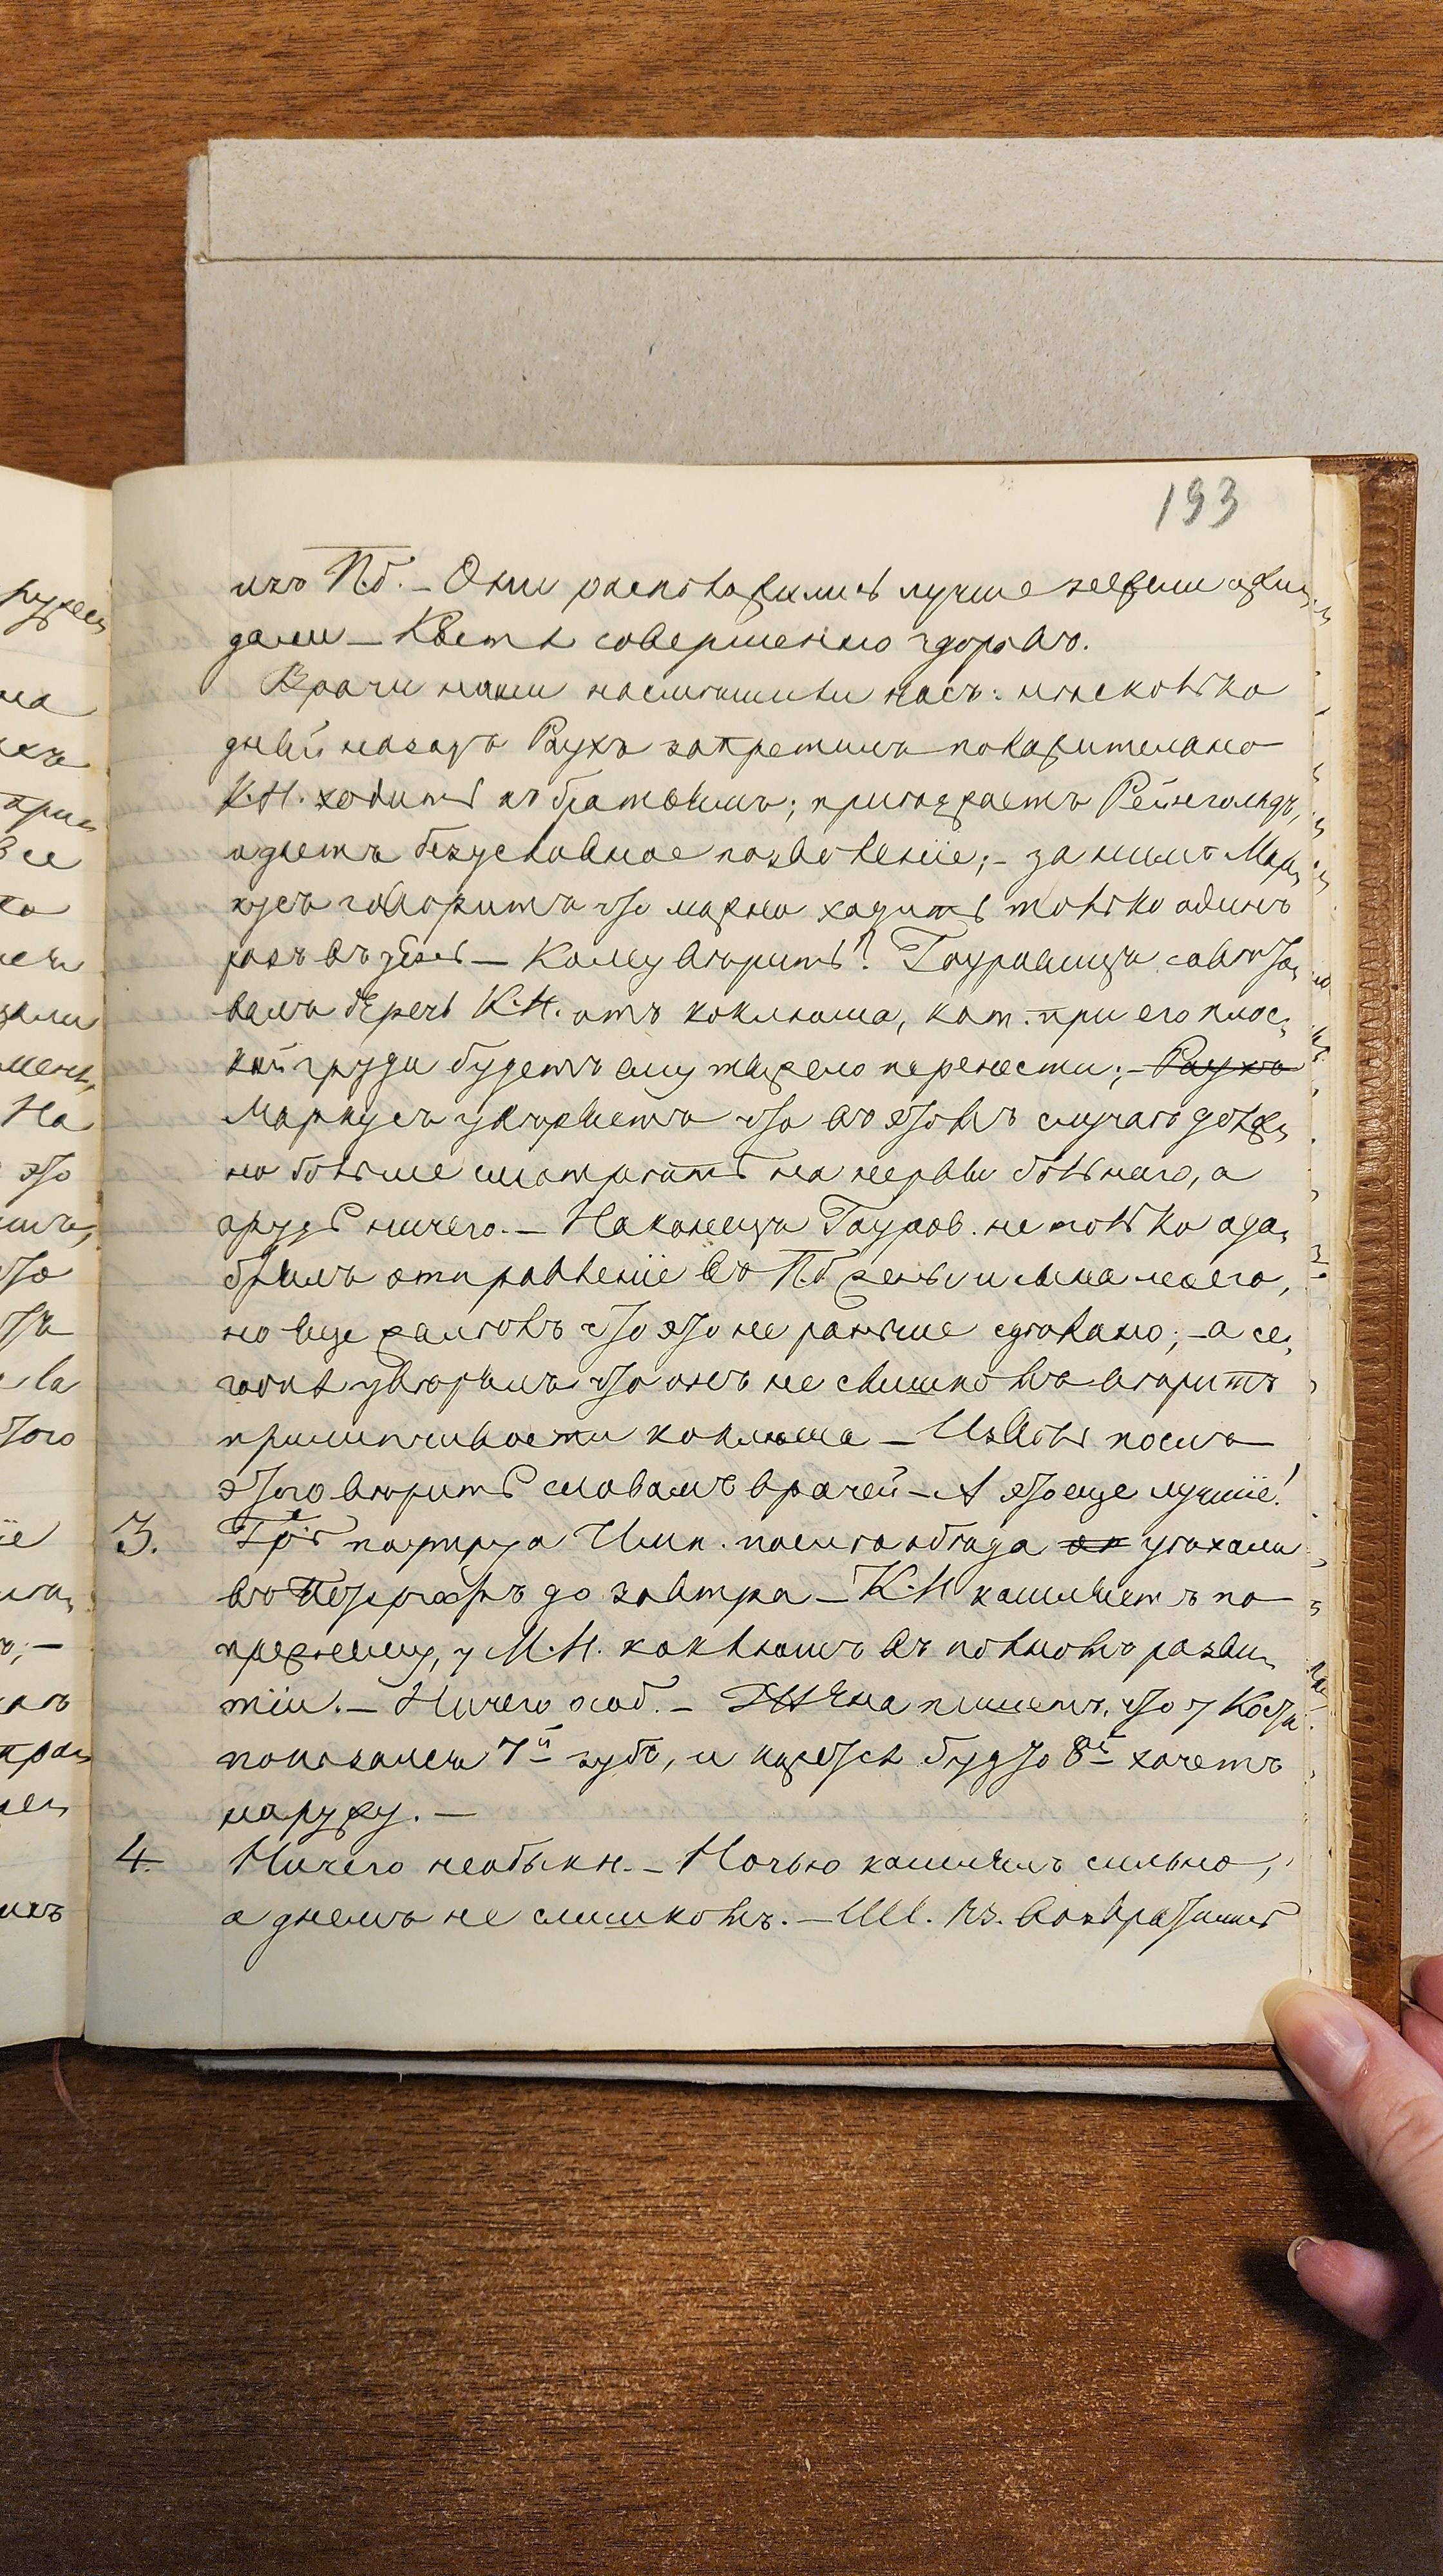 193
изъ П.б. — Они расположились лучше нежели ожи-
дали — Костя совершенно здоровъ.
Врачи наши насмѣшили насъ: нѣсколько
дней назадъ Раухъ запретилъ положительно
К.Н. ходить къ братьямъ; пріѣзжаетъ Рейнгольдъ,
и даетъ безусловное позволеніе; — за нимъ Мар-
кусъ говоритъ что можно ходить только одинъ
разъ въ день — Кому вѣрить? Гауровицъ совѣто-
валъ беречь К.Н. отъ коклюша, кот. при его плос-
кой груди будетъ ему тяжело перенести; — Раухъ
Маркусъ увѣряетъ что въ этомъ случаѣ долж-
но больше смотрѣть на нервы больнаго, а
грудь ничего. — Наконецъ Гауров. не только одо-
брилъ отправленіе въ П.б. жены и сына моего,
но еще жалѣлъ что это не раньше сдѣлано; — а се-
годня увѣрялъ что онъ не слишкомъ вѣритъ
прилипчивости коклюша — Изволь послѣ
этого вѣрить словамъ врачей — А это еще лучшіе!
3.
послѣ обѣда уѣхали
въ Петергофъ до завтра — К.Н кашляетъ по
прежнему, у М.Н. коклюшъ въ полномъ разви-
тіи. — Ничего особ. — Жена пишетъ, что у Кости
показался 7й зубъ, и кажется будто 8й хочетъ
наружу. —
4.
Ничего необыкн. — Ночью кашлялъ сильно,
а днемъ не слишкомъ. — И.И. Вз. возвратились